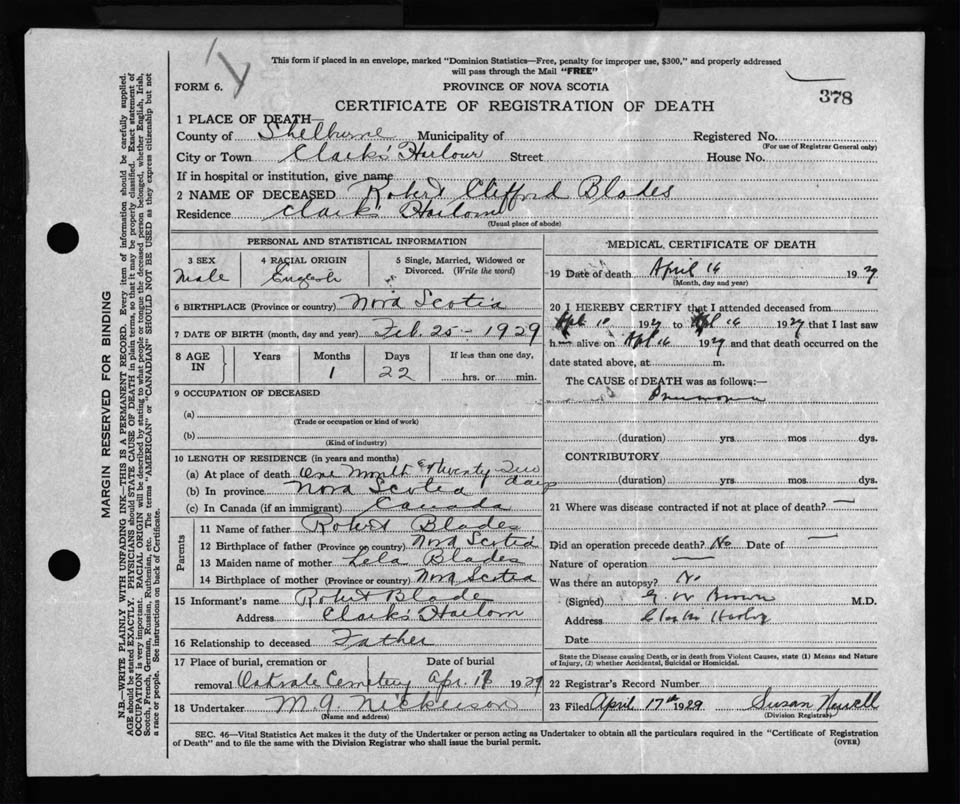 This form if placed in an envelope, marked "Dominion Statistics—Free, penalty for improper use, $300," and properly addressed
will pass through the Mail "FREE"
FORM 6.
PROVINCE OF NOVA SCOTIA
378
CERTIFICATE OF REGISTRATION OF DEATH
1 PLACE OF DEATH—
County of Shelburne Municipality of Registered No.
(For use of Registrar General only)
City or Town Clarks' Harbour Street House No.
If in hospital or institution, give name
2 NAME OF DECEASED Robert Clifford Blades
Residence Clarks Harbour
(Usual place of abode)
PERSONAL AND STATISTICAL INFORMATION
3 SEX 4 RACIAL ORIGIN 5 Single, Married, Widowed or
Divorced. (Write the word)
Male English
6 BIRTHPLACE (Province or country) Nova Scotia
7 DATE OF BIRTH (month, day and year) Feb. 25 - 1929
8 AGE IN Years Months Days If less than one day,
1 22 hrs. or min.
9 OCCUPATION OF DECEASED
(a)
(Trade or occupation or kind of work)
(b)
(Kind of industry)
10 LENGTH OF RESIDENCE (in years and months)
(a) At place of death One Month & Twenty Two days
(b) In province Nova Scotia
(c) In Canada (if an immigrant) Canada
Parents
11 Name of father Robert Blades
12 Birthplace of father (Province or country) Nova Scotia
13 Maiden name of mother Lela Blades
14 Birthplace of mother (Province or country) Nova Scotia
15 Informant's name Robert Blade
Address Clark's Harbour
16 Relationship to deceased Father
17 Place of burial, cremation or Date of burial
removal Cemetery Apr. 1929
18 Undertaker M. A. Nickerson
(Name and address)
MEDICAL CERTIFICATE OF DEATH
19 Date of death April 16 1929
(Month, day and year)
20 I HEREBY CERTIFY that I attended deceased from
Apl 10 1929 to Apl 16 1929 that I last saw
h alive on Apl 16 1929 and that death occurred on the
date stated above, at m.
The CAUSE of DEATH was as follows:—
Pneumonia
(duration) yrs. mos. dys.
CONTRIBUTORY
(duration) yrs. mos. dys.
21 Where was disease contracted if not at place of death? —
Did an operation precede death? No Date of —
Nature of operation —
Was there an autopsy? No
(Signed) G. W. Brown M.D.
Address Clarks Harbor
Date
State the Disease causing Death, or in death from Violent Causes, state (1) Means and Nature
of Injury, (2) whether Accidental, Suicidal or Homicidal.
22 Registrar's Record Number
23 Filed April 17th 1929 Susan Newell
(Division Registrar)
SEC. 46—Vital Statistics Act makes it the duty of the Undertaker or person acting as Undertaker to obtain all the particulars required in the "Certificate of Registration
of Death" and to file the same with the Division Registrar who shall issue the burial permit.
(OVER)
MARGIN RESERVED FOR BINDING
N.B.—WRITE PLAINLY WITH UNFADING INK—THIS IS A PERMANENT RECORD. Every item of information should be carefully supplied.
AGE should be stated EXACTLY. PHYSICIANS should STATE CAUSE OF DEATH in plain terms, so that it may be properly classified. Exact statement of
OCCUPATION is very important. RACIAL ORIGIN will be described by stating to what people or tongue the deceased person belonged, whether English, Irish,
Scotch, French, German, Russian, Ruthenian, etc. The terms "AMERICAN" or "CANADIAN" SHOULD NOT BE USED as they express citizenship but not
a race or people. See instructions on back of Certificate.